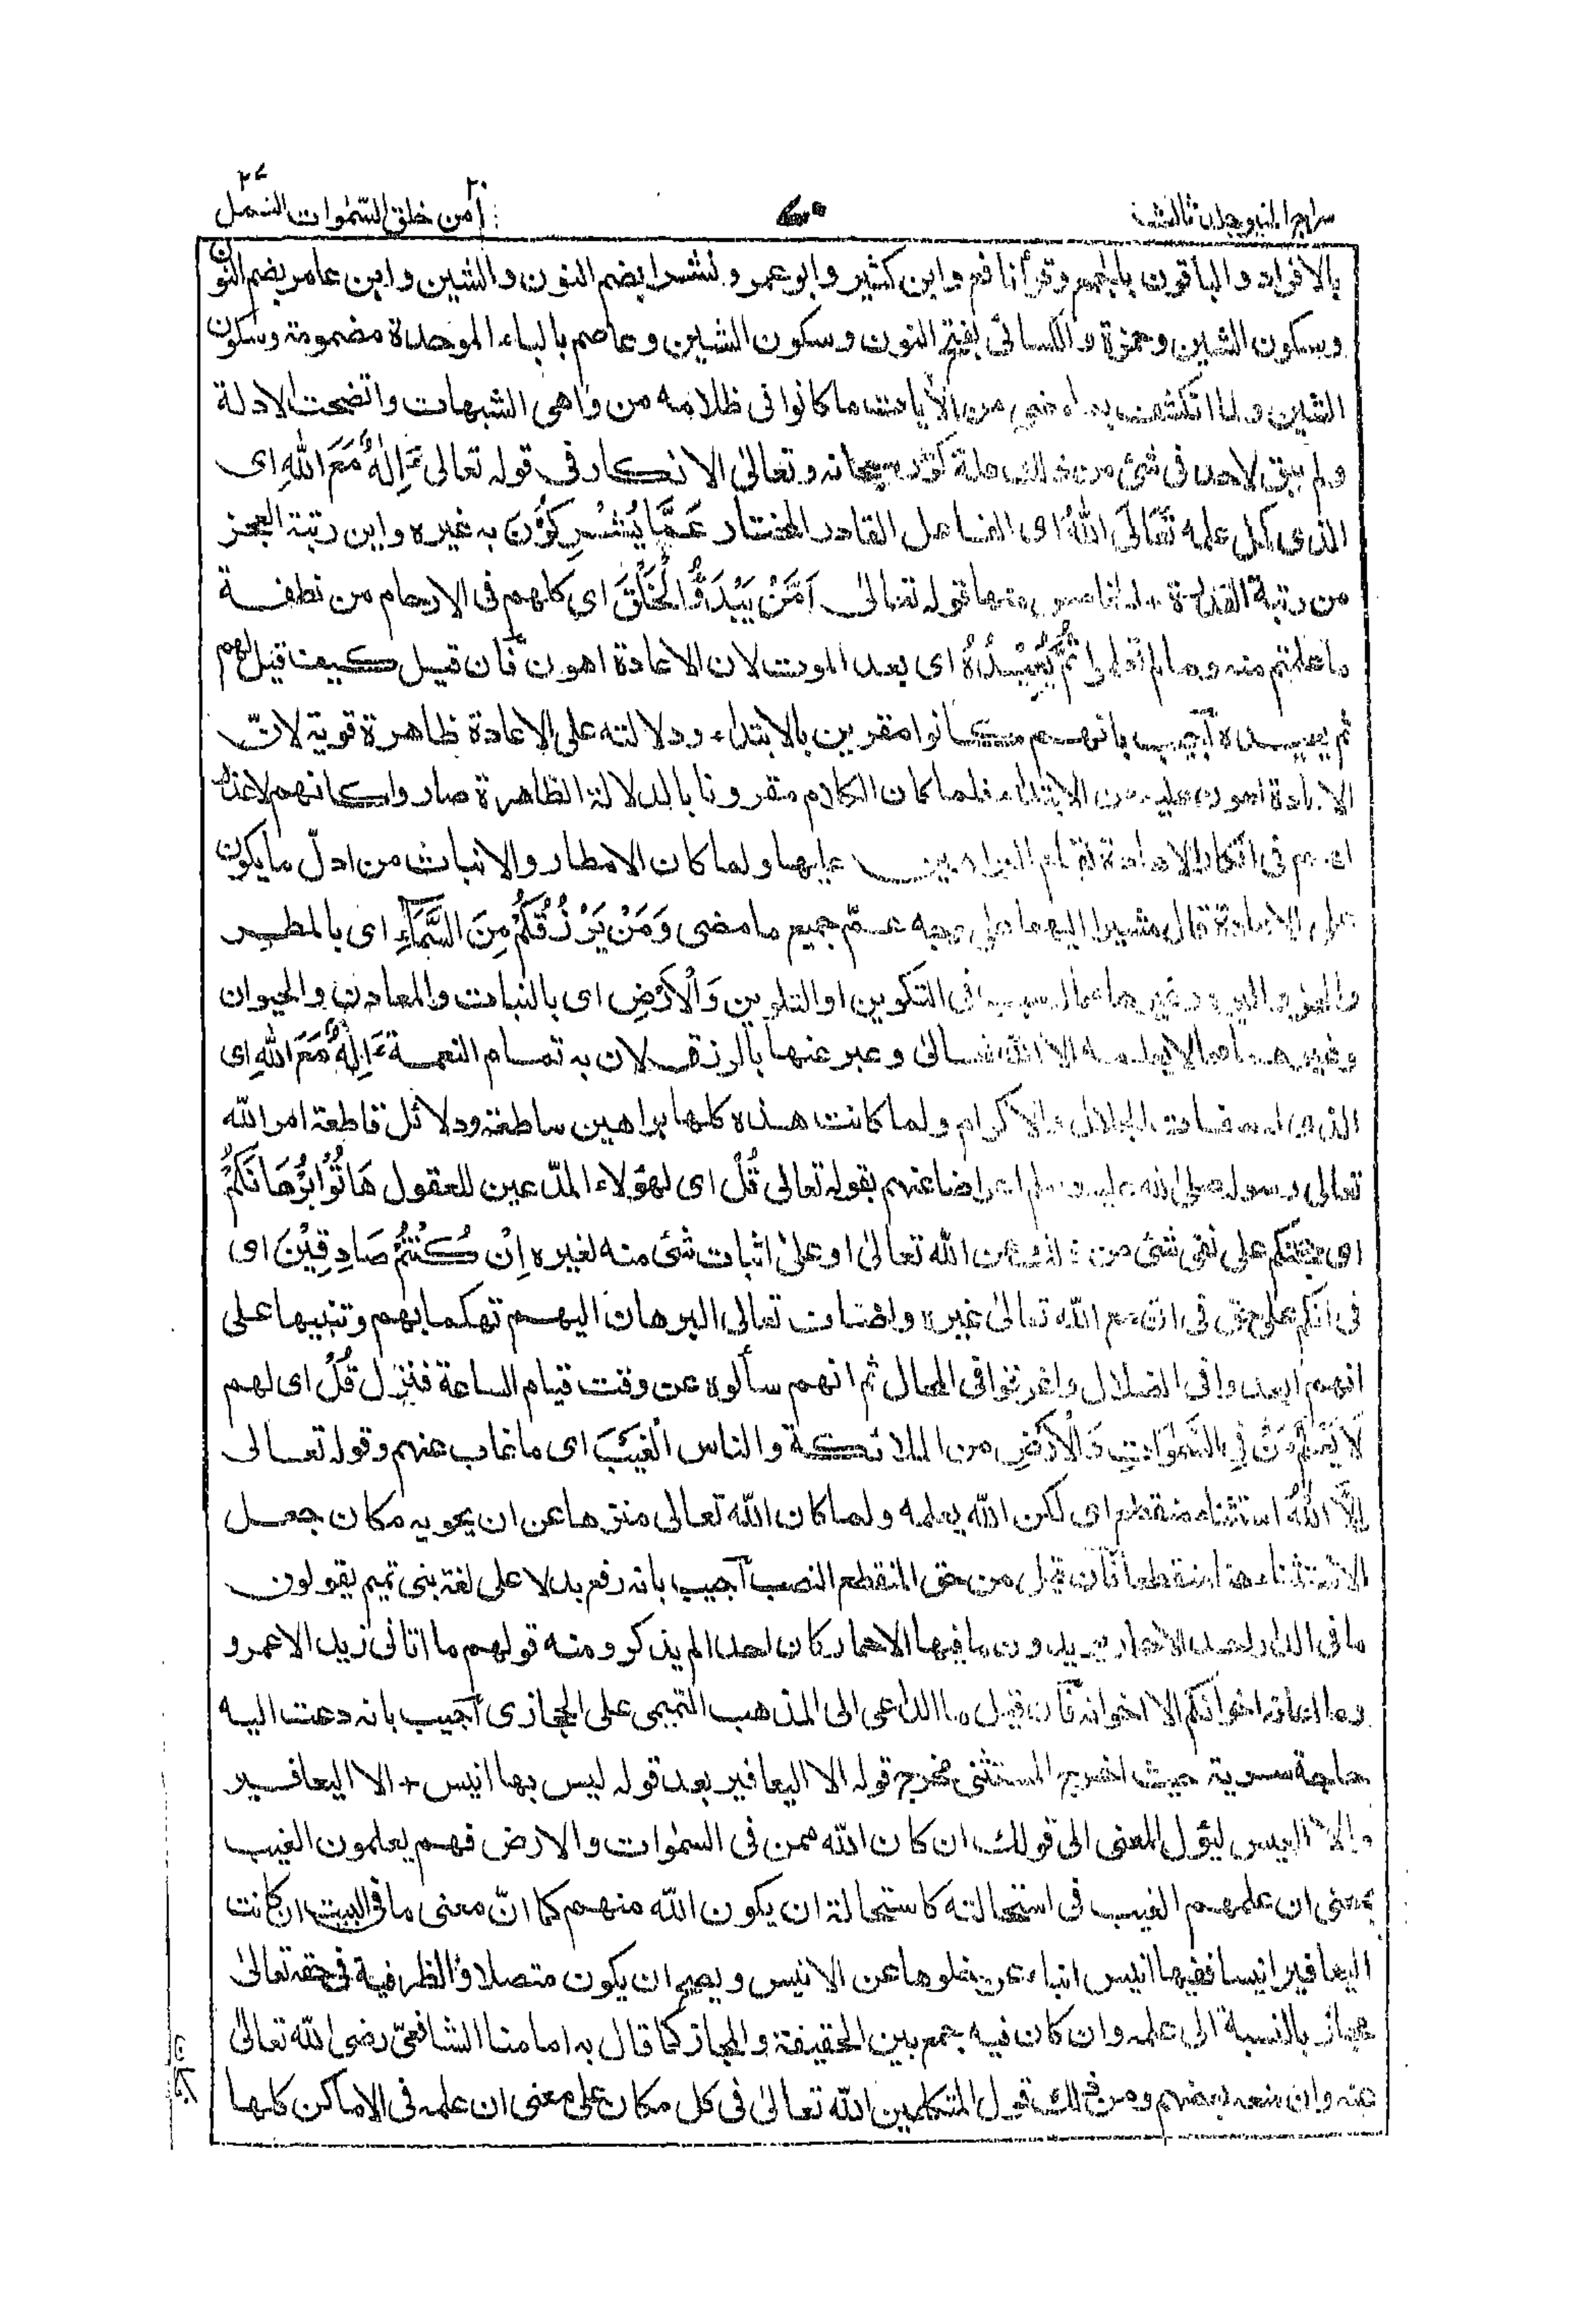 سراج المنير جلد ثالث
امن خلق السمٰوات ٢٠ النمل ٢٧
بالافراد والباقون بالجمع وقرأ نافع وابن كثير وابو عمرو نشرا بضم النون والشين وابن عامر بضم النون
وسكون الشين وحمزة والكسائى بفتح النون وسكون الشين وعاصم بالباء الموحدة مضمومة وسكون
الشين ولما انكشف من الآيات ما كانوا فى ظلامه من واهى الشبهات واتضحت الادلة
ولم يبق لاحد فى شئ من ذلك علة كرر سبحانه وتعالىٰ الانكار فى قوله تعالى ءَاِلٰهٌ مَّعَ اللهِ اى
الذى كمل علمه تَعَالَى اللهُ اى الفاعل القادر المختار عَمَّا يُشْرِكُوْنَ به غيره واين رتبة العجز
من رتبة القدرة منها قوله تعالىٰ اَمَّنْ يَبْدَؤُا الْخَلْقَ اى كلهم فى الارحام من نطفة
ما علمتم منه وما لم تعلموا ثُمَّ يُعِيْدُهٗ اى بعد الموت لان الاعادة اهون فان قيل كيف قيل لهم
ثم يعيده اجيب بانهم كانوا مقرين بالابتداء ودلالته على الاعادة ظاهرة قوية لانّ
الاعادة اهون عليه من الابتداء فلما كان الكلام مقرونا بالدلالة الظاهرة صاروا كانهم لا عذر
لهم فى انكار الاعادة لقيام البراهين عليها ولما كان الامطار والانبات من ادلّ ما يكون
على الاعادة قال مشيرا اليهما على وجه عمّ جميع ما مضى وَمَنْ يَّرْزُقُكُمْ مِّنَ السَّمَآءِ اى بالمطر
والحر والبرد وغيرها مما له سبب فى التكوين او التلوين وَالْاَرْضِ اى بالنبات والمعادن والحيوان
وغيرها مما لا يعلمه الا الله تعالىٰ وعبر عنها بالرزق لان به تمام النعمة ءَاِلٰهٌ مَّعَ اللهِ اى
الذى له صفات الجلال والاكرام ولما كانت هذه كلها براهين ساطعة ودلائل قاطعة امر الله
تعالى رسوله صلى الله عليه وسلم اعراضا عنهم بقوله تعالى قُلْ اى لهؤلاء المدّعين للعقول هَاتُوْا بُرْهَانَكُمْ
اى حجتكم على نفى شئ من ذلك عن الله تعالىٰ او علىٰ اثبات شئ منه لغيره اِنْ كُنْتُمْ صَادِقِيْنَ اى
فى انكم على حق فى ان مع الله تعالىٰ غيره واضاف تعالى البرهان اليهم تهكما بهم وتنبيها على
انهم ابعدوا فى الضلال واغرقوا فى المحال ثم انهم سألوه عن وقت قيام الساعة فنزل قُلْ اى لهم
لَا يَعْلَمُ مَنْ فِى السَّمٰوَاتِ وَالْاَرْضِ من الملائكة والناس الْغَيْبَ اى ما غاب عنهم وقوله تعالى
اِلَّا اللهُ استثناء منقطع اى لكن الله يعلمه ولما كان الله تعالى منزها عن ان يحويه مكان جعل
الاستثناء هنا منقطعا فان قيل من حق المنقطع النصب اجيب بانه رفع بدلا على لغة بنى تميم يقولون
ما فى الدار احد الا حمار يريدون ما فيها الا حمار كان احدا لم يذكر ومنه قولهم ما اتانى زيد الا عمرو
وما اعانه اخوانكم الا اخوانه فان قيل ما الداعى الى المذهب التميمى على الحجازى اجيب بانه دعت اليه
حاجة سرية حيث اخرج المستثنى مخرج قوله الا اليعافير بعد قوله ليس بها انيس + الا اليعافير
والا العيس ليؤل المعنى الى قولك ان كان الله ممن فى السمٰوات والارض فهم يعلمون الغيب
بمعنى ان علمهم الغيب فى استحالته كاستحالة ان يكون الله منهم كما انّ معنى ما فى البيت ان كانت
اليعافير انيسا ففيها انيس انباء عن خلوها عن الانيس ويصح ان يكون متصلا والظرفية فى حقه تعالىٰ
مجاز بالنسبة الى علمه وان كان فيه جمع بين الحقيقة والمجاز كما قال به امامنا الشافعىّ رضى الله تعالىٰ
عنه وان منعه بعضهم ومن ذلك قول المتكلمين الله تعالىٰ فى كل مكان على معنى ان علمه فى الاماكن كلها